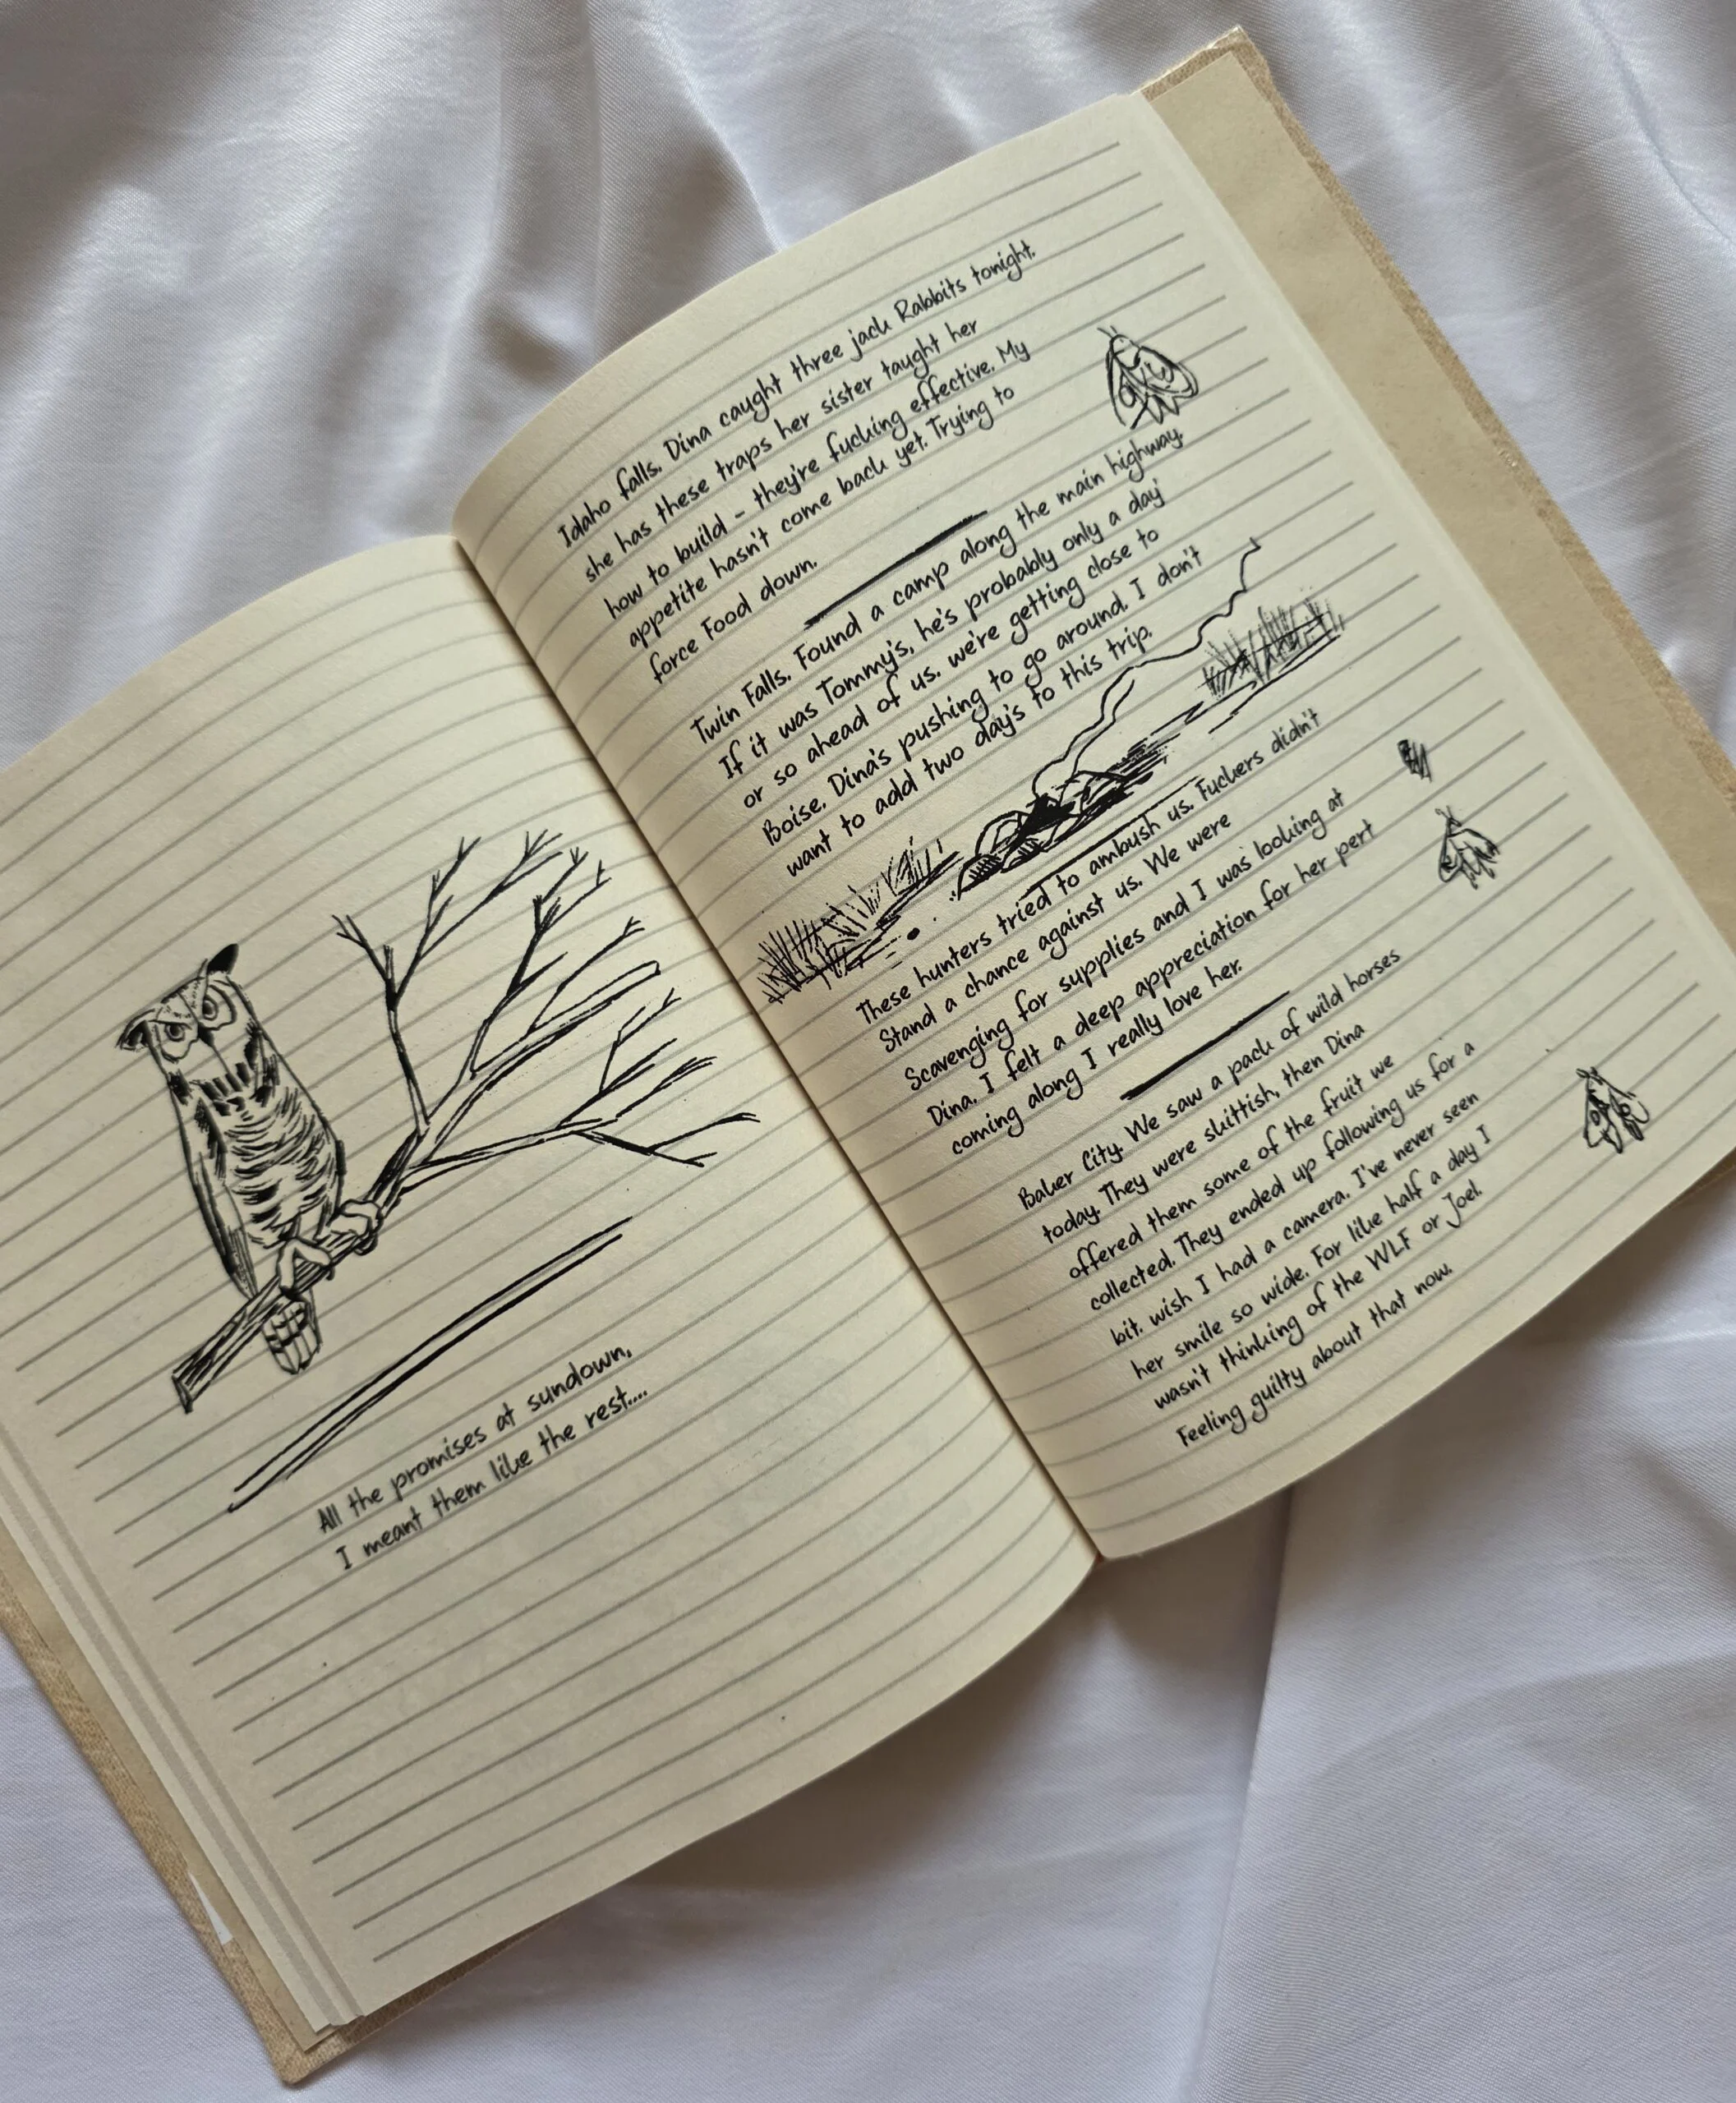 All the promises at sundown,
I meant them like the rest....
Idaho falls. Dina caught three jack Rabbits tonight.
she has these traps her sister taught her
how to build - they're fucking effective. My
appetite hasn't come back yet. Trying to
force Food down.
Twin Falls. Found a camp along the main highway.
If it was Tommy's, he's probably only a day
or so ahead of us. we're getting close to
Boise. Dina's pushing to go around. I don't
want to add two day's to this trip.
These hunters tried to ambush us. Fuckers didn't
Stand a chance against us. We were
Scavenging for supplies and I was looking at
Dina. I felt a deep appreciation for her pert
coming along I really love her.
Baker City. We saw a pack of wild horses
today. They were skittish, then Dina
offered them some of the fruit we
collected. They ended up following us for a
bit. wish I had a camera. I've never seen
her smile so wide. For like half a day I
wasn't thinking of the WLF or Joel.
Feeling guilty about that now.